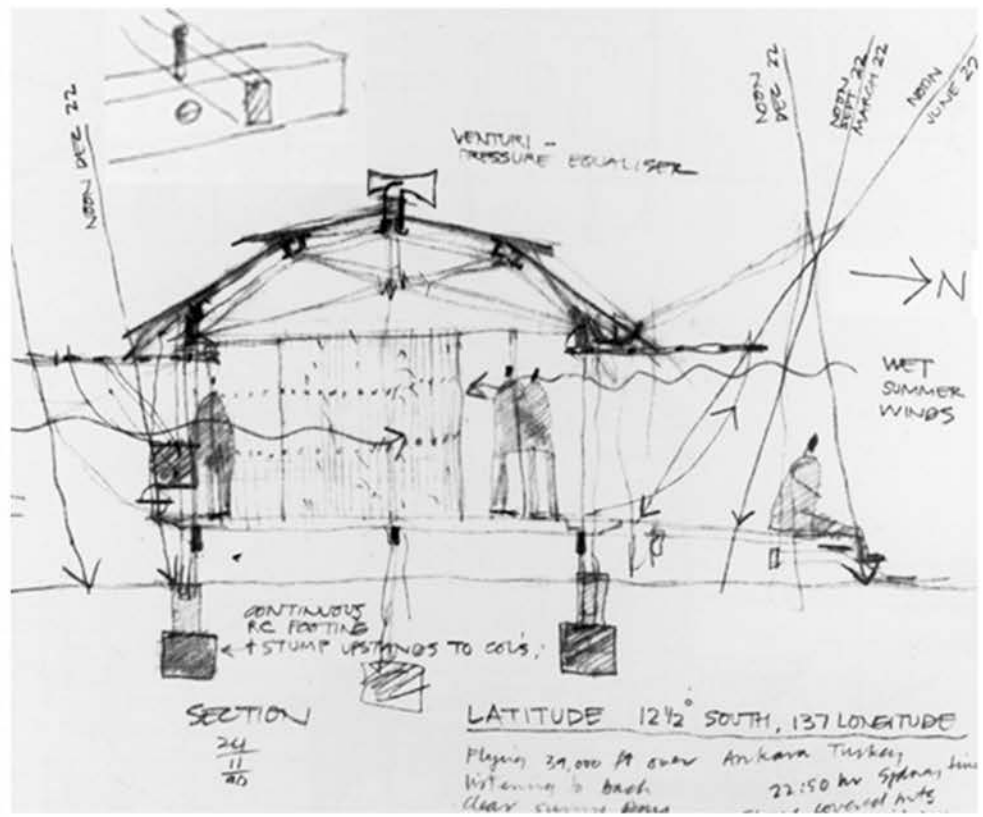 NOON DEC 22
VENTURI -
PRESSURE EQUALISER
NOON
DEC 22
NOON
SEPT. 22
MARCH 22
NOON
JUNE 22
N
WET
SUMMER
WINDS
CONTINUOUS
RC FOOTING
+ STUMP UPSTANDS TO COL'S,
SECTION
24
11
LATITUDE 12½° SOUTH, 137 LONGITUDE
Flying 39,000 ft over Ankara Turkey
22:50 hr Sydney time
listening to bach
covered mts
clear